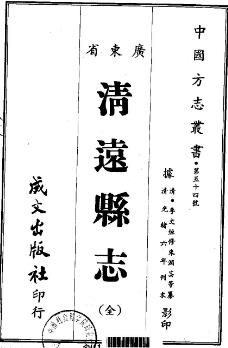 中國方志叢書・第五十四號
據清・李文烜修朱潤芸等纂
清光緒六年刊本影印
廣東省
清遠縣志
(全)
成文出版社印行